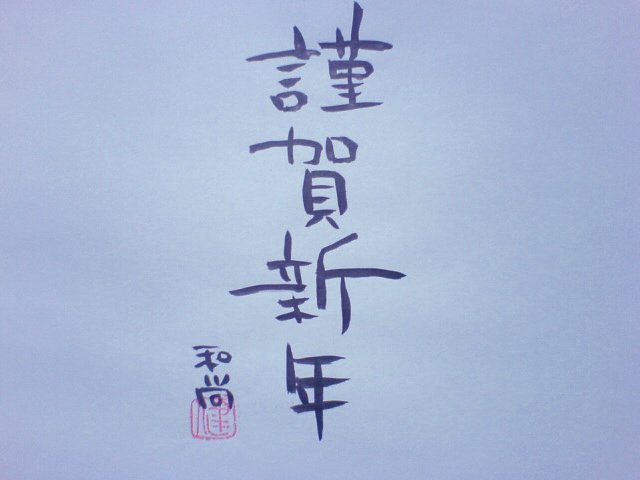 謹賀新年
和尚